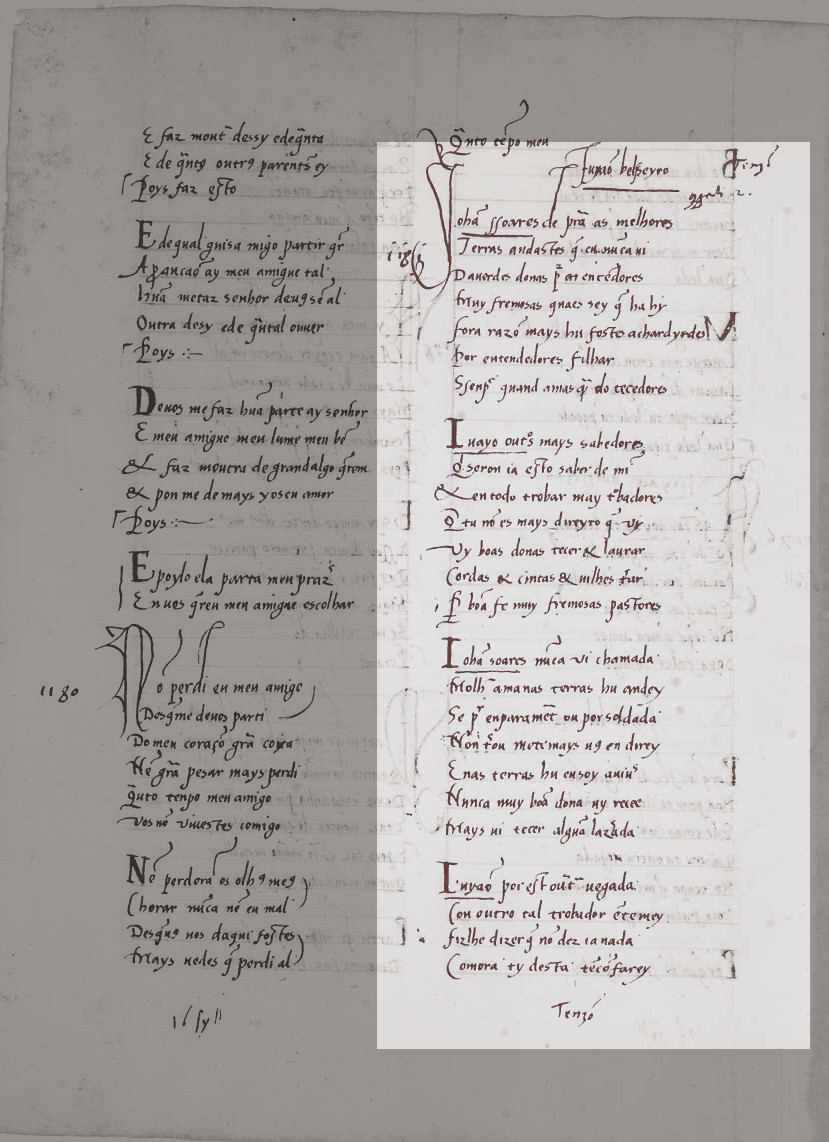 E faz mout̃ dessy edeq̃nta
E de q̃ntꝯ outrꝯ parent̃s ey
Poys faz esto
E dequal guisa migo partir gr̃
A p̃ ay meu amigue tal
hũa metaz senhor deuꝯ sẽ al
Outra desy ede q̃ntal ouuer
Poys
Deuos me faz hũa parte ay senhor
E meu amigue meu lume meu bẽ
& faz mouera de grandalgo q̃rem
& pon me de mays y oseu amor
Poys
E poylo ela parta meu praz̃
E n ues q̃reu meu amigue escolhar
1180
Nõ perdi eu meu amigo
Desq̃me deuos parti
Do meu coraçõ grã coyta
Nẽ grã pesar mays perdi
Q̃nto tenpo meu amigo
Vos nõ viuestes comigo
Nẽ perderã os olhꝯ meꝯ
Chorar nũca nẽ eu mal
Desq̃uꝯ uos daqui fostes
Mays uedes q̃ perdi al
Q̃nto tẽpo meu
Iuyão bolseyro
Tenzõ
1181
Iohã ssoares de prã as melhores
Terras andastes q̃ eu nũca ui
Dauerdes donas p̃ entendedores
Muy fremosas quaes sey q̃ ha hy
fora razõ mays hu fostes achar
Por entendedores filhar
Ssenp̃ quand amas q̃r do tecedores
Iuyão outꝯ mays sabedores
Q̃seron ia esto saber de mĩ
& en todo trobar may tbadores
Q̃ tu nõ es mays direyto q̃ uy
Vy boas donas tecer & laurar
Cordas & cintas & uilhes
P boã fe muy fremosas pastores
Iohã soares nũca vi chamada
Molh amanas terras hu andey
Se p̃ enparamẽt ou por soldada
Nõn meti mays uꝯ en direy
E nas terras hu eu soy auiũ
Nunca muy boã dona uy tecer
Mays ui tecer algũa lazada
Iuyão por est out uegada
Con outro tal trobador ẽtemey
fizlhe dizer q̃ nõ dez ia nada
Comora ty desta tẽcõ farey
Tenzõ